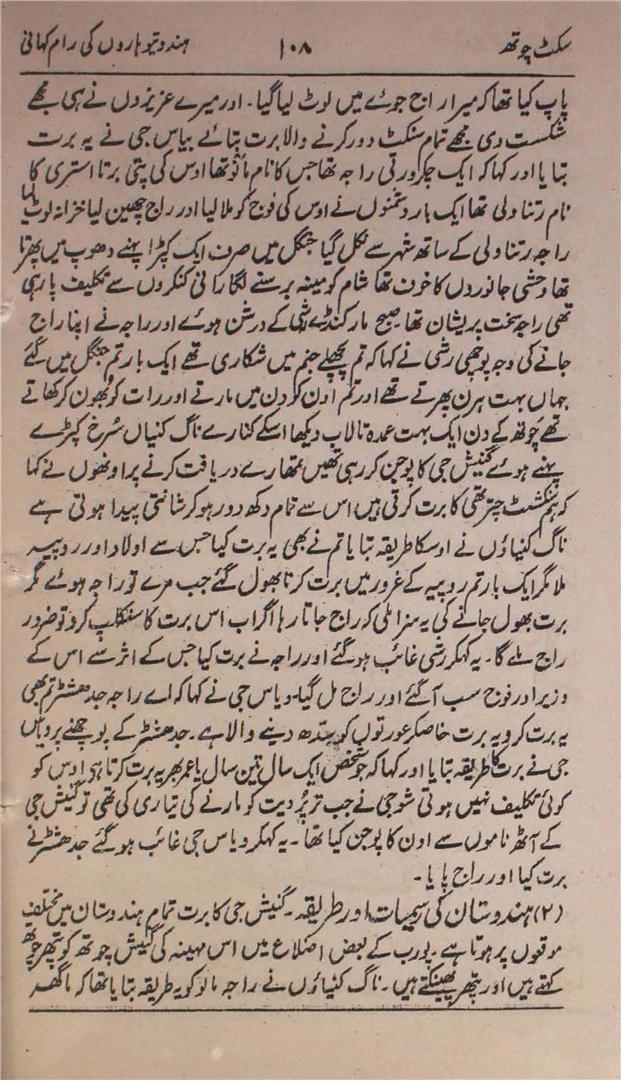 سکٹ چوتھ ۱۰۸ ہندو تیوہاروں کی رام کہانی
پاپ کیا تھا کہ میرا راج جوئے میں لوٹ لیا گیا۔ اور میرے عزیزوں نے ہی مجھے
شکست دی مجھے تمام سنکٹ دور کرنے والا برت بتائیے بیاس جی نے یہ برت
بتایا اور کہا کہ ایک چکرورتی راجہ تھا جس کا نام مانؤ تھا اوس کی پتی برتا استری کا
نام رتناولی تھا ایک بار دشمنوں نے اوس کی فوج کو ملا لیا اور راج چھین لیا خزانہ لوٹ لیا
راجہ رتناولی کے ساتھ شہر سے نکل گیا جنگل میں صرف ایک کپڑا پہنے دھوپ میں پھرتا
تھا وحشی جانوردں کا خوف تھا شام کو مینہ برسنے لگا رانی کنکروں سے تکلیف پا رہی
تھی راجہ سخت پریشان تھا۔ صبح مارکنڈے رشی کے درشن ہوئے اور راجہ نے اپنا راج
جانے کی وجہ پوچھی رشی نے کہا کہ تم پچھلے جنم میں شکاری تھے ایک بار تم جنگل میں گئے
جہاں بہت ہرن پھرتے تھے اور تم اون کو دن میں مارتے اور رات کو بھون کر کھاتے
تھے چوتھ کے دن ایک بہت عمدہ تالاب دیکھا اسکے کنارے ناگ کنیاں سُرخ کپڑے
پہنے ہوئے گنیش جی کا پوجن کر رہی تھیں تمھارے دریافت کرنے پر اونھوں نے کہا
کہ ہم سنکشٹ چترتھی کا برت کرتی ہیں اس سے تمام دکھ دور ہو کر شانتی پیدا ہوتی ہے
ناگ کنیاؤں نے اوسکا طریقہ بتایا تم نے بھی یہ برت کیا جس سے اولاد اور روپیہ
ملا مگر ایک بار تم روپیہ کے غرور میں برت کرنا بھول گئے جب مرے تو راجہ ہوئے مگر
برت بھول جانے کی یہ سزا ملی کہ راج جاتا رہا اگر اب اس برت کا سنکلپ کرو تو ضرور
راج ملے گا۔ یہ کہکر رشی غائب ہو گئے اور راجہ نے برت کیا جس کے اثر سے اس کے
وزیر اور فوج سب آگئے اور راج مل گیا۔ ویاس جی نے کہا کہ اے راجہ جدھشٹر تم بھی
یہ برت کرو یہ برت خاصکر عورتوں کو سِدّھ دینے والا ہے۔ جدھشٹر کے پوچھنے پر ویاس
جی نے برت کا طریقہ بتایا اور کہا کہ جو شخص ایک سال تین سال یا عمر بھر یہ برت کرتا ہی اوس کو
کوئی تکلیف نہیں ہوتی شوجی نے جب ترپُر دیت کو مارنے کی تیاری کی تھی تو گنیش جی
کے آٹھ ناموں سے اون کا پوجن کیا تھا۔ یہ کہکر ویاس جی غائب ہو گئے جدھشٹر نے
برت کیا اور راج پایا۔
(۲) ہندوستان کی رسمیات اور طریقہ۔ گنیش جی کا برت تمام ہندوستان میں مختلف
موقعوں پر ہوتا ہے۔ پورب کے بعض اضلاع میں اس مہینہ کی گنیش چوتھ کو پتھر چوتھ
کہتے ہیں اور پتھر پھینکتے ہیں۔ ناگ کنیاؤں نے راجہ مانؤ کو یہ طریقہ بتایا تھا کہ ماگھ